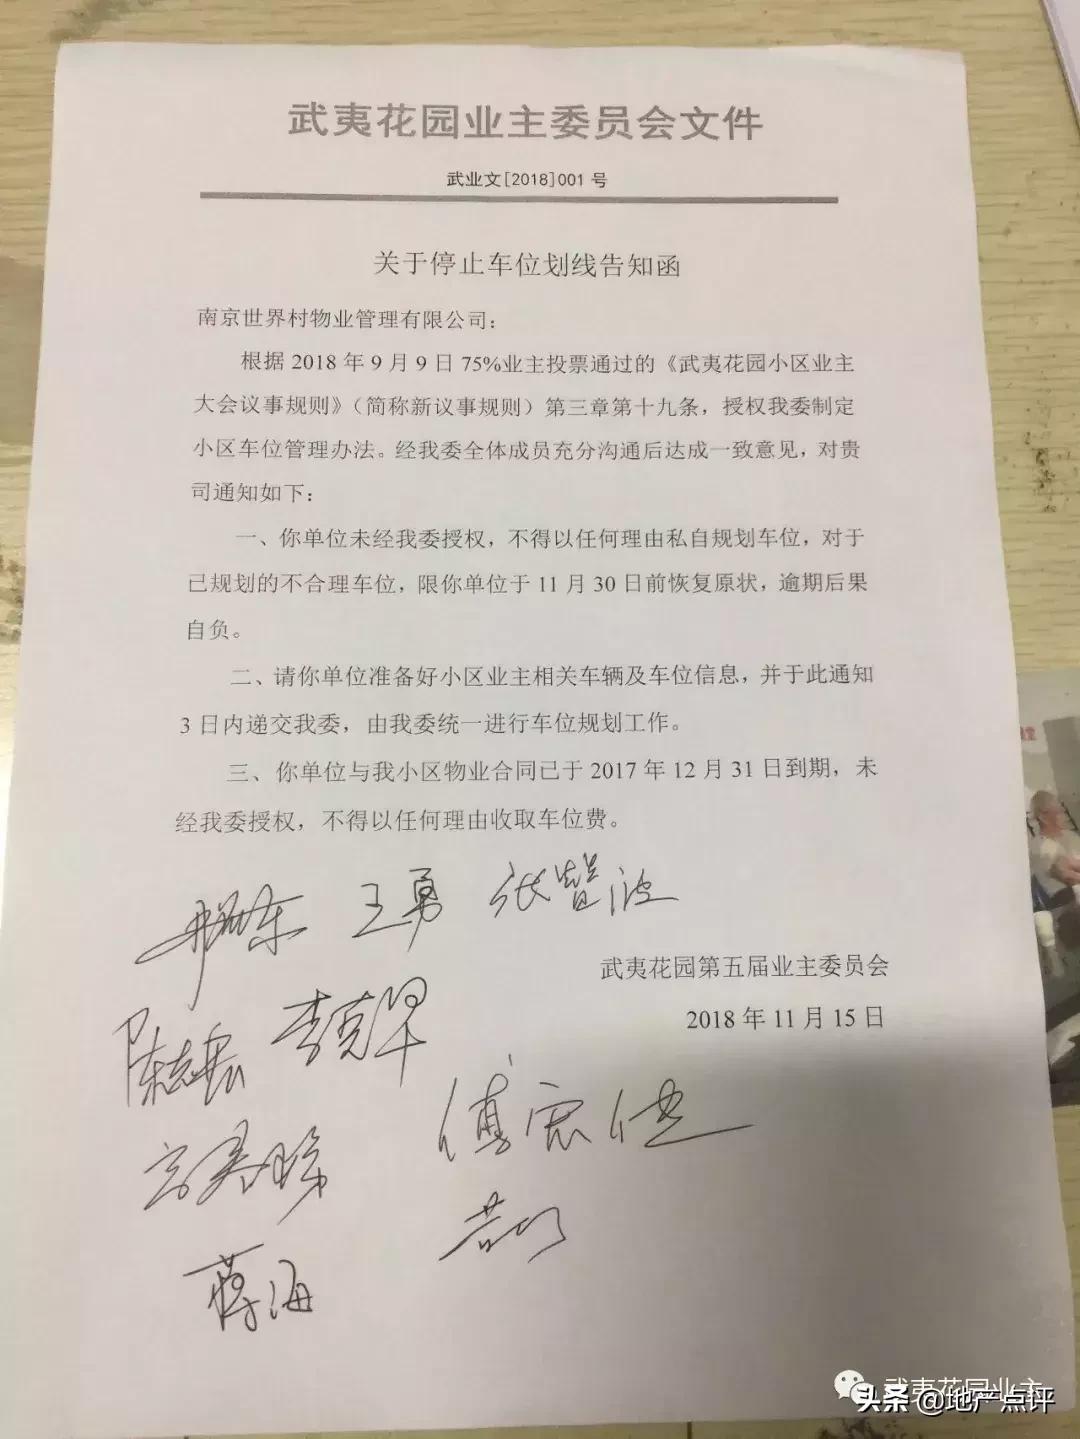 武夷花园业主委员会文件
武业文[2018]001 号
关于停止车位划线告知函
南京世界村物业管理有限公司：
根据 2018 年 9 月 9 日 75%业主投票通过的《武夷花园小区业主
大会议事规则》（简称新议事规则）第三章第十九条，授权我委制定
小区车位管理办法。经我委全体成员充分沟通后达成一致意见，对贵
司通知如下：
一、你单位未经我委授权，不得以任何理由私自规划车位，对于
已规划的不合理车位，限你单位于 11 月 30 日前恢复原状，逾期后果
自负。
二、请你单位准备好小区业主相关车辆及车位信息，并于此通知
3 日内递交我委，由我委统一进行车位规划工作。
三、你单位与我小区物业合同已于 2017 年 12 月 31 日到期，未
经我委授权，不得以任何理由收取车位费。
王勇 张智波
武夷花园第五届业主委员会
2018 年 11 月 15 日
蒋海
武夷花园业主
头条@地产点评